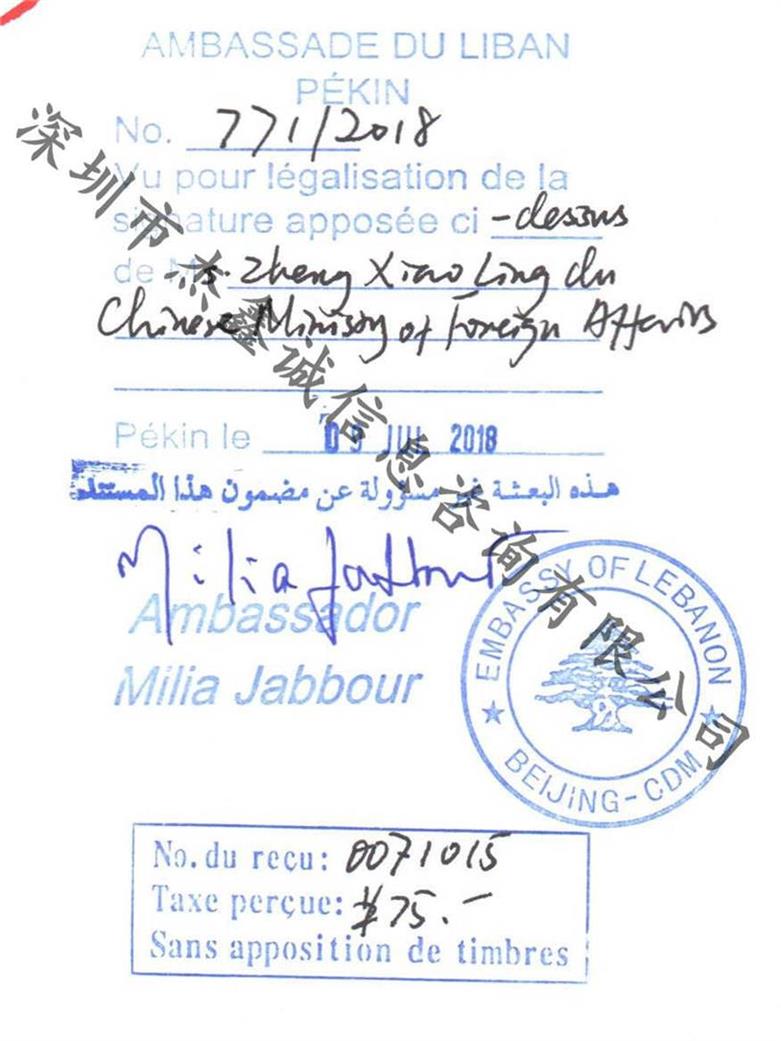 AMBASSADE DU LIBAN
PÉKIN
No. 771/2018
Vu pour légalisation de la
signature apposée ci -dessus
de Ms. Zheng Xiao Ling du
Chinese Ministry of Foreign Affairs
Pékin le 09 JUL 2018
هذه البعثة غير مسؤولة عن مضمون هذا المستند
Milia Jabbour
Ambassador
Milia Jabbour
EMBASSY OF LEBANON
BEIJING-CDM
No. du reçu: 0071015
Taxe perçue: ¥75.-
Sans apposition de timbres
深圳市杰鑫诚信息咨询有限公司